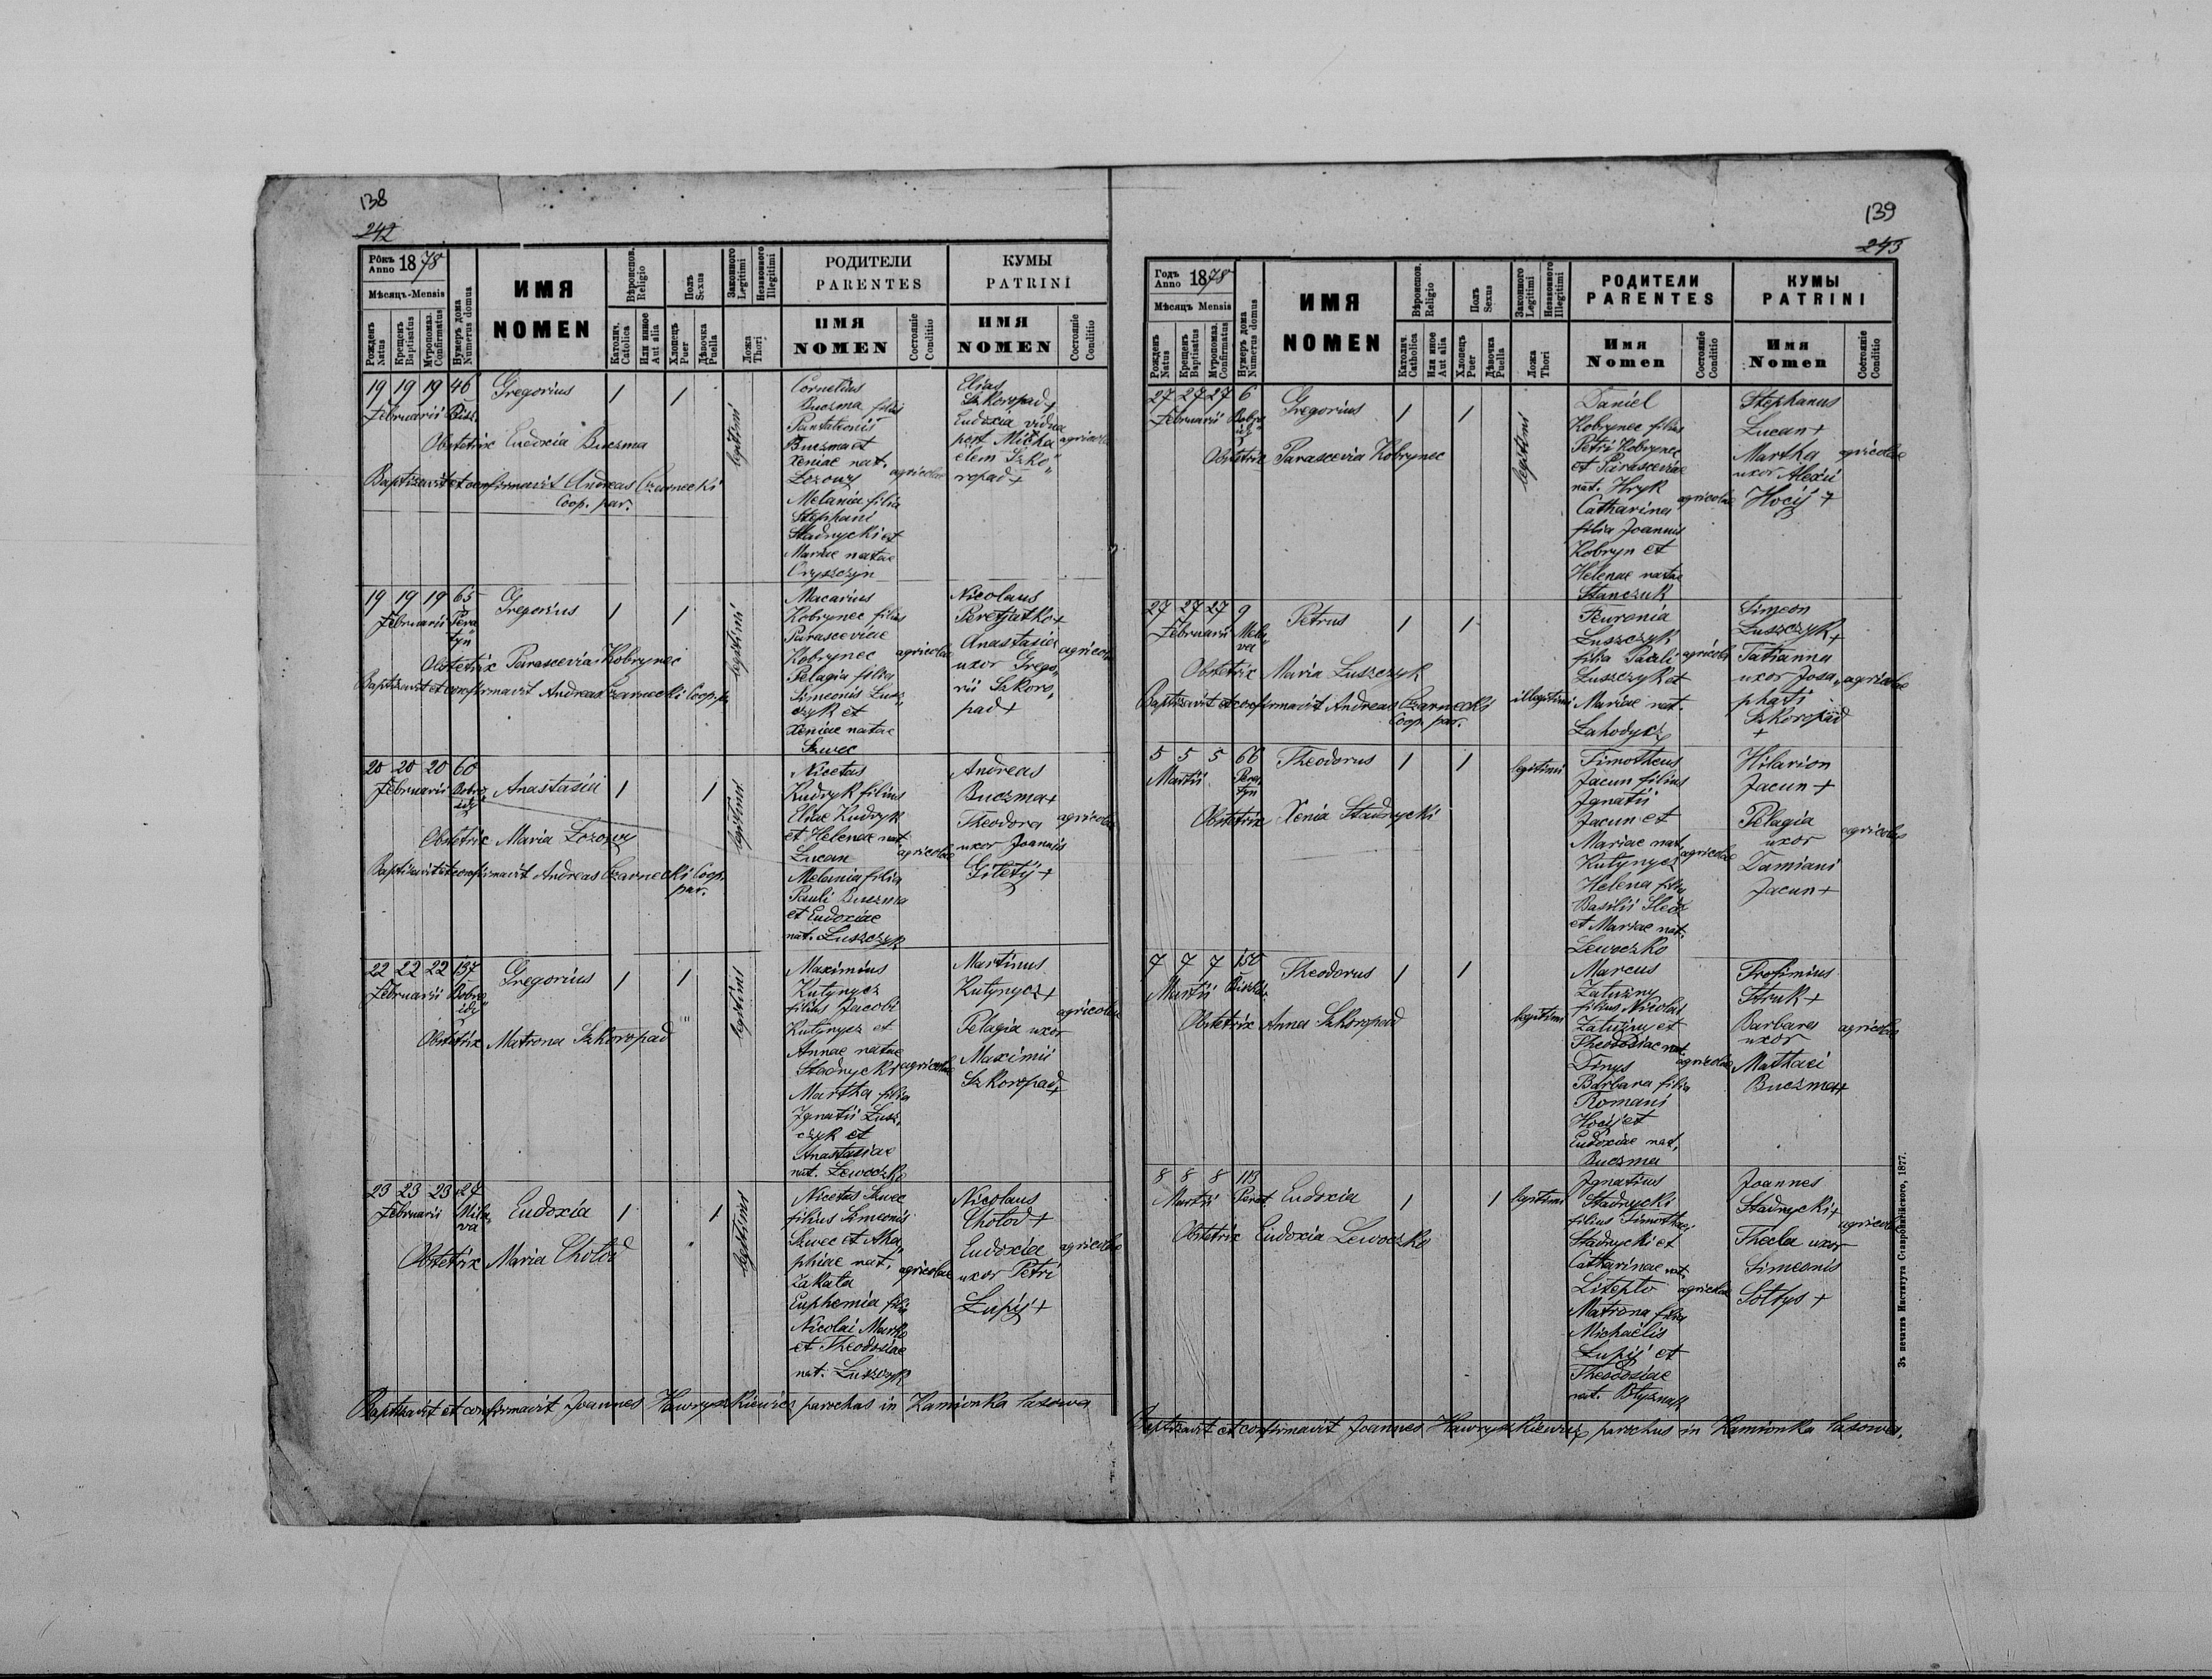 138
242
Рôкъ Anno 1878
Мѣсяцъ-Mensis
Рожденъ Natus
Крещенъ Baptisatus
Мѵропомаз. Confirmatus
Нумеръ дома Numerus domus
ИМЯ
NOMEN
Вѣроиспов. Religio
Католич. Catholica
Или инное Aut alia
Полъ Sexus
Хлопецъ Puer
Дѣвочка Puella
Законного Legitimi
Незаконного Illegitimi
Ложа Thori
РОДИТЕЛИ
PARENTES
ИМЯ
NOMEN
Состояніе Conditio
КУМЫ
PATRINI
ИМЯ
NOMEN
Состояніе Conditio
19 19 19 46 Gregorius 1 1
Februarii
Obstetrix Eudoxia Buczma
Baptisavit et confirmavit Andreas Czarnecki
Coop. par.
legitimi
Cornelius
Buczma filius
Pantaleonis
Buczma et
Xeniae nat.
Lozowy
Melania filia
Stephani
Stadnycki et
Mariae natae
Oryszczyn
agricolae
Elias
Szkoropad +
Eudoxia vidua
post Micha
elem Szko„
ropad +
agricolae
19 19 19 65 Gregorius 1 1
Februarii Pera
tyn
Obstetrix Parascevia Kobrynec
Baptisavit et confirmavit Andreas Czarnecki Coop. p.
legitimi
Macarius
Kobrynec filius
Parasceviae
Kobrynec
Pelagia filia
Simeonis Łusz„
czyk et
Xeniae natae
Szwec
agricolae
Nicolaus
Peretjatko +
Anastasia
uxor Grego„
rii Szkoro„
pad +
agricolae
20 20 20 60 Anastasia 1 1
Februarii
Obstetrix Maria Lozowy
Baptisavit et confirmavit Andreas Czarnecki Coop.
par.
legitimi
Nicetas
Kudryk filius
Eliae Kudryk
et Helenae nat.
Lucan
Melania filia
Pauli Buczma
et Eudoxiae
nat. Łuszczyk
agricolae
Andreas
Buczma +
Theodora
uxor Joannis
agricolae
22 22 22 137 Gregorius 1 1
Februarii
Obstetrix Matrona Szkoropad
legitimi
Maximius
Kutynycz
filius Jacobi
Kutynycz et
Annae natae
Stadnycki
Martha filia
Ignatii Łusz„
czyk et
Anastasiae
nat. Lewoczko
agricolae
Martinus
Kutynycz +
Pelagia uxor
Maximii
Szkoropad +
agricolae
23 23 23 27 Eudoxia 1 1
Februarii
Obstetrix Maria Chołod
legitimi
Nicetas Szwec
filius Simeonis
Szwec et Aga„
phiae nat.
Zakała
Euphemia filia
Nicolai Marko
et Theodosiae
nat. Łuszczyk
agricolae
Nicolaus
Chołod +
Eudoxia
uxor Petri
Łupij +
agricolae
Baptisavit et confirmavit Joannes Hawryszkiewicz parochus in Kamionka lasowa
139
243
Годъ Anno 1878
Мѣсяцъ Mensis
Рожденъ Natus
Крещенъ Baptisatus
Мѵропомаз. Confirmatus
Нумеръ дома Numerus domus
ИМЯ
NOMEN
Вѣроиспов. Religio
Католич. Catholica
Или иное Aut alia
Полъ Sexus
Хлопецъ Puer
Дѣвочка Puella
Законного Legitimi
Незаконного Illegitimi
Ложа Thori
РОДИТЕЛИ
PARENTES
Имя
Nomen
Состояніе Conditio
КУМЫ
PATRINI
Имя
Nomen
Состояніе Conditio
27 27 27 6 Gregorius 1 1
Februarii
Obstetrix Parascevia Kobrynec
legitimi
Daniel
Kobrynec filius
Petri Kobrynec
et Parasceviae
nat. Hryk
Catharina
filia Joannis
Kobryn et
Helenae natae
Stanczuk
agricolae
Stephanus
Lucan +
Martha
uxor Alexii
Hocij +
agricolae
27 27 27 9 Petrus 1 1
Februarii
Obstetrix Maria Łuszczyk
Baptisavit et confirmavit Andreas Czarnecki
Coop. par.
illegitimi
Feuronia
Łuszczyk
filia Pauli
Łuszczyk et
Mariae nat.
Łahodycz
agricolae
Simeon
Łuszczyk +
Tatianna
uxor Josa„
phati
Szkoropad
+
agricolae
5 5 5 66 Theodorus 1 1
Martii Pera
tyn
Obstetrix Xenia Stadnycki
legitimi
Timotheus
Jacun filius
Ignatii
Jacun et
Mariae nat.
Kutynycz
Helena filia
Basilii
et Mariae nat.
Lewoczko
agricolae
Hilarion
Jacun +
Pelagia
uxor
Damiani
Jacun +
agricolae
7 7 7 150 Theodorus 1 1
Martii
Obstetrix Anna Szkoropad
legitimi
Marcus
Załużny
filius Nicolai
Załużny et
Theodosiae nat.
Dinys
Barbara filia
Romani
Hocij et
Eudoxiae nat.
Buczma
agricolae
Trofimius
Struk +
Barbara
uxor
Mathaei
Buczma +
agricolae
8 8 8 113 Eudoxia 1 1
Martii Perat.
Obstetrix Eudoxia Lewoczko
legitimi
Ignatius
Stadnycki
filius Timothei
Stadnycki et
Catharinae nat.
Matrona filia
Michaelis
Łupij et
Theodosiae
nat.
agricolae
Joannes
Stadnycki +
Thecla uxor
Simeonis
Sołtys +
agricolae
Baptisavit et confirmavit Joannes Hawryszkiewicz parochus in Kamionka lasowa.
Зъ печатнѣ Института Ставропигійского, 1877.